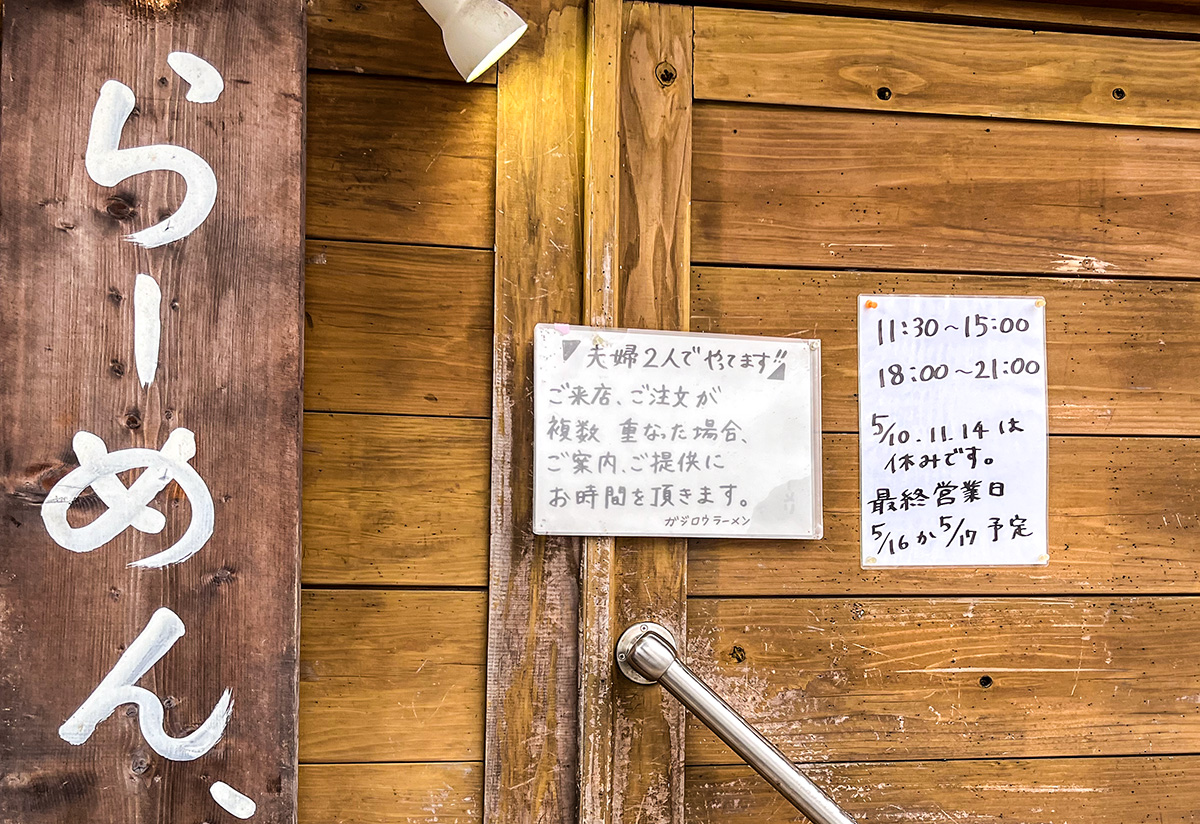 らーめん、
夫婦2人でやってます!!
ご来店、ご注文が
複数 重なった場合、
ご案内、ご提供に
お時間を頂きます。
ガジロウラーメン
11:30~15:00
18:00~21:00
5/10.11.14は
休みです。
最終営業日
5/16か5/17予定